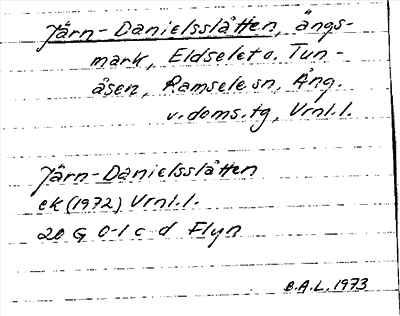 Järn-Danielsslåtten, ängs-
mark, Eldselet o. Tun-
åsen, Ramsele sn, Ång.
v. doms.tg, Vrnl.l.
Järn-Danielsslåtten
ek (1972) Vrnl.l.
20 G 0-1 c d Flyn
B.A.L. 1973